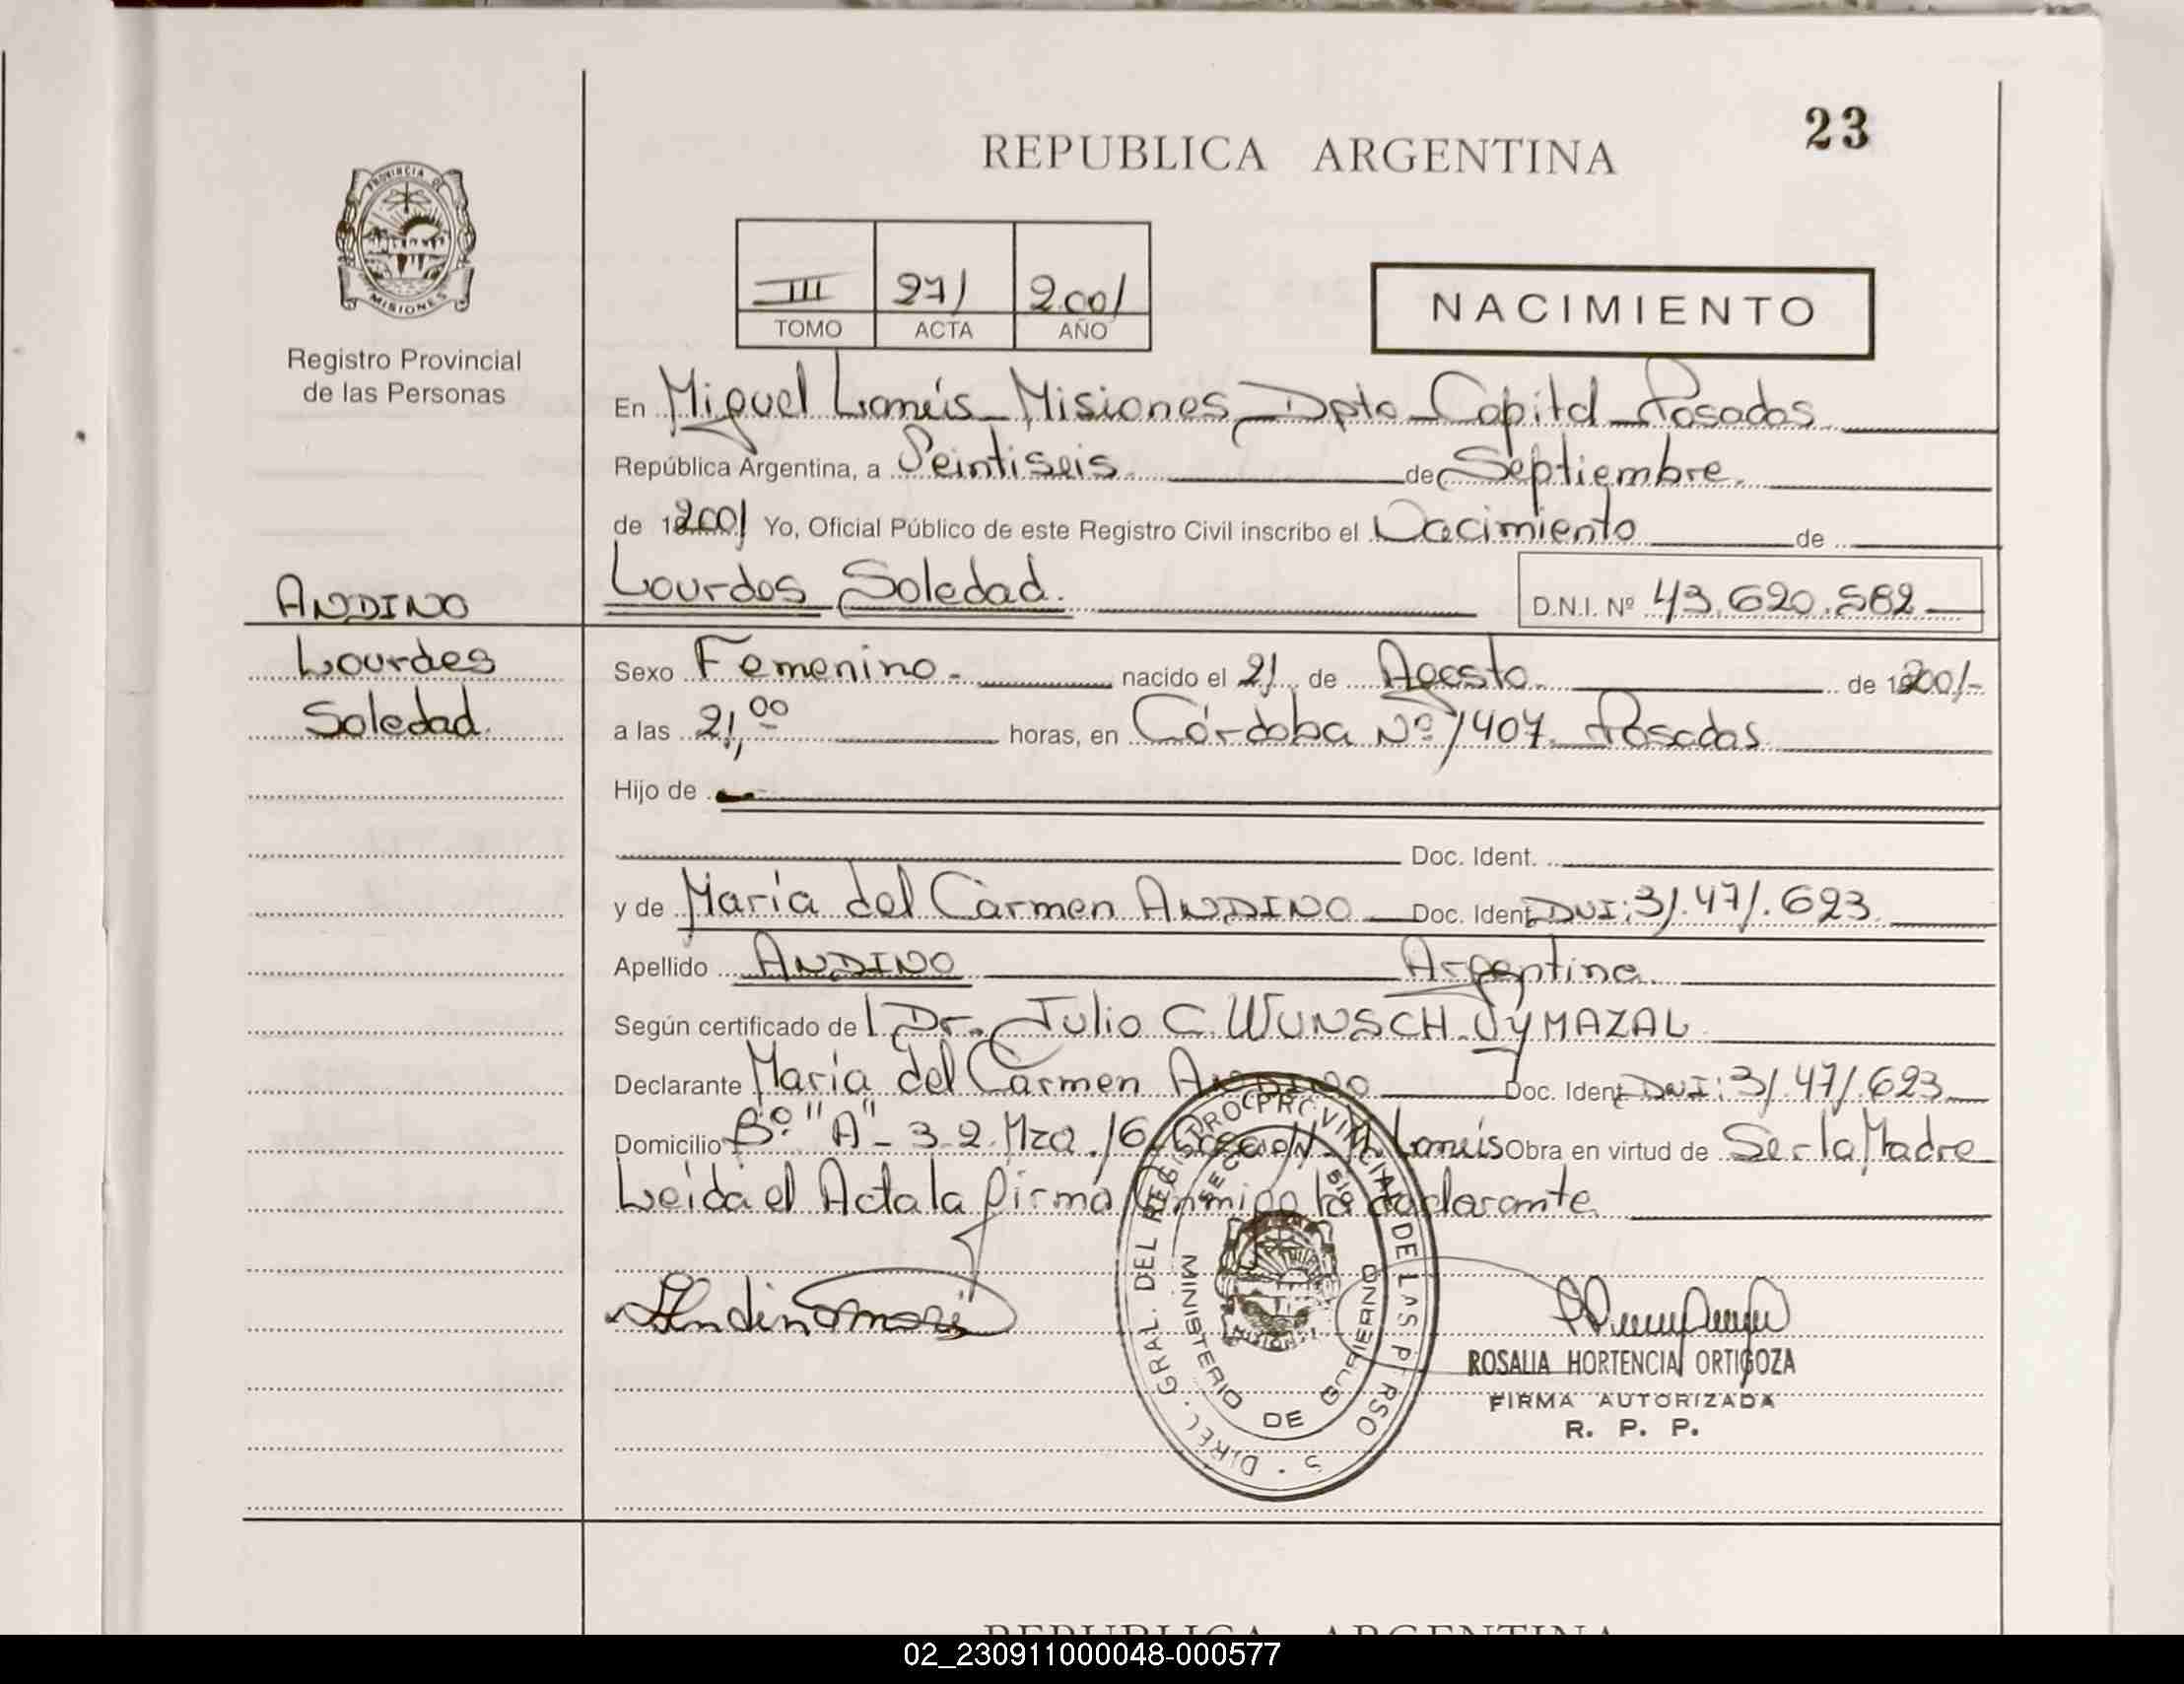 23
REPUBLICA ARGENTINA
PROVINCIA DE
MISIONES
Registro Provincial
de las Personas
III 271 2001
TOMO ACTA AÑO
NACIMIENTO
En Miguel Lanús - Misiones - Dpto - Capital - Posadas
República Argentina, a Veintiseis de Septiembre.
de 2001 Yo, Oficial Público de este Registro Civil inscribo el Nacimiento de
Lourdes Soledad. D.N.I. Nº 43.620.582
ANDINO
Lourdes
Soledad.
Sexo Femenino - nacido el 21 de Agosto. de 2001-
a las 21,00 horas, en Córdoba Nº 1407. Posadas
Hijo de
Doc. Ident.
y de María del Carmen ANDINO Doc. Ident. DNI: 31.471.623.
Apellido ANDINO Argentina.
Según certificado del Dr. Julio C. WUNSCH - VYMAZAL
Declarante María del Carmen ANDINO Doc. Ident. DNI: 31.471.623
Domicilio Bº "A" - 3 2. Mza. 16 Lanús Obra en virtud de Ser la Madre
Leída el Acta la firma conmigo la declarante.
DIREC. GRAL. DEL REGISTRO PROVINCIAL DE LAS PERSONAS
MINISTERIO DE GOBIERNO
ROSALIA HORTENCIA ORTIGOZA
FIRMA AUTORIZADA
R. P. P.
REPUBLICA ARGENTINA
02_230911000048-000577